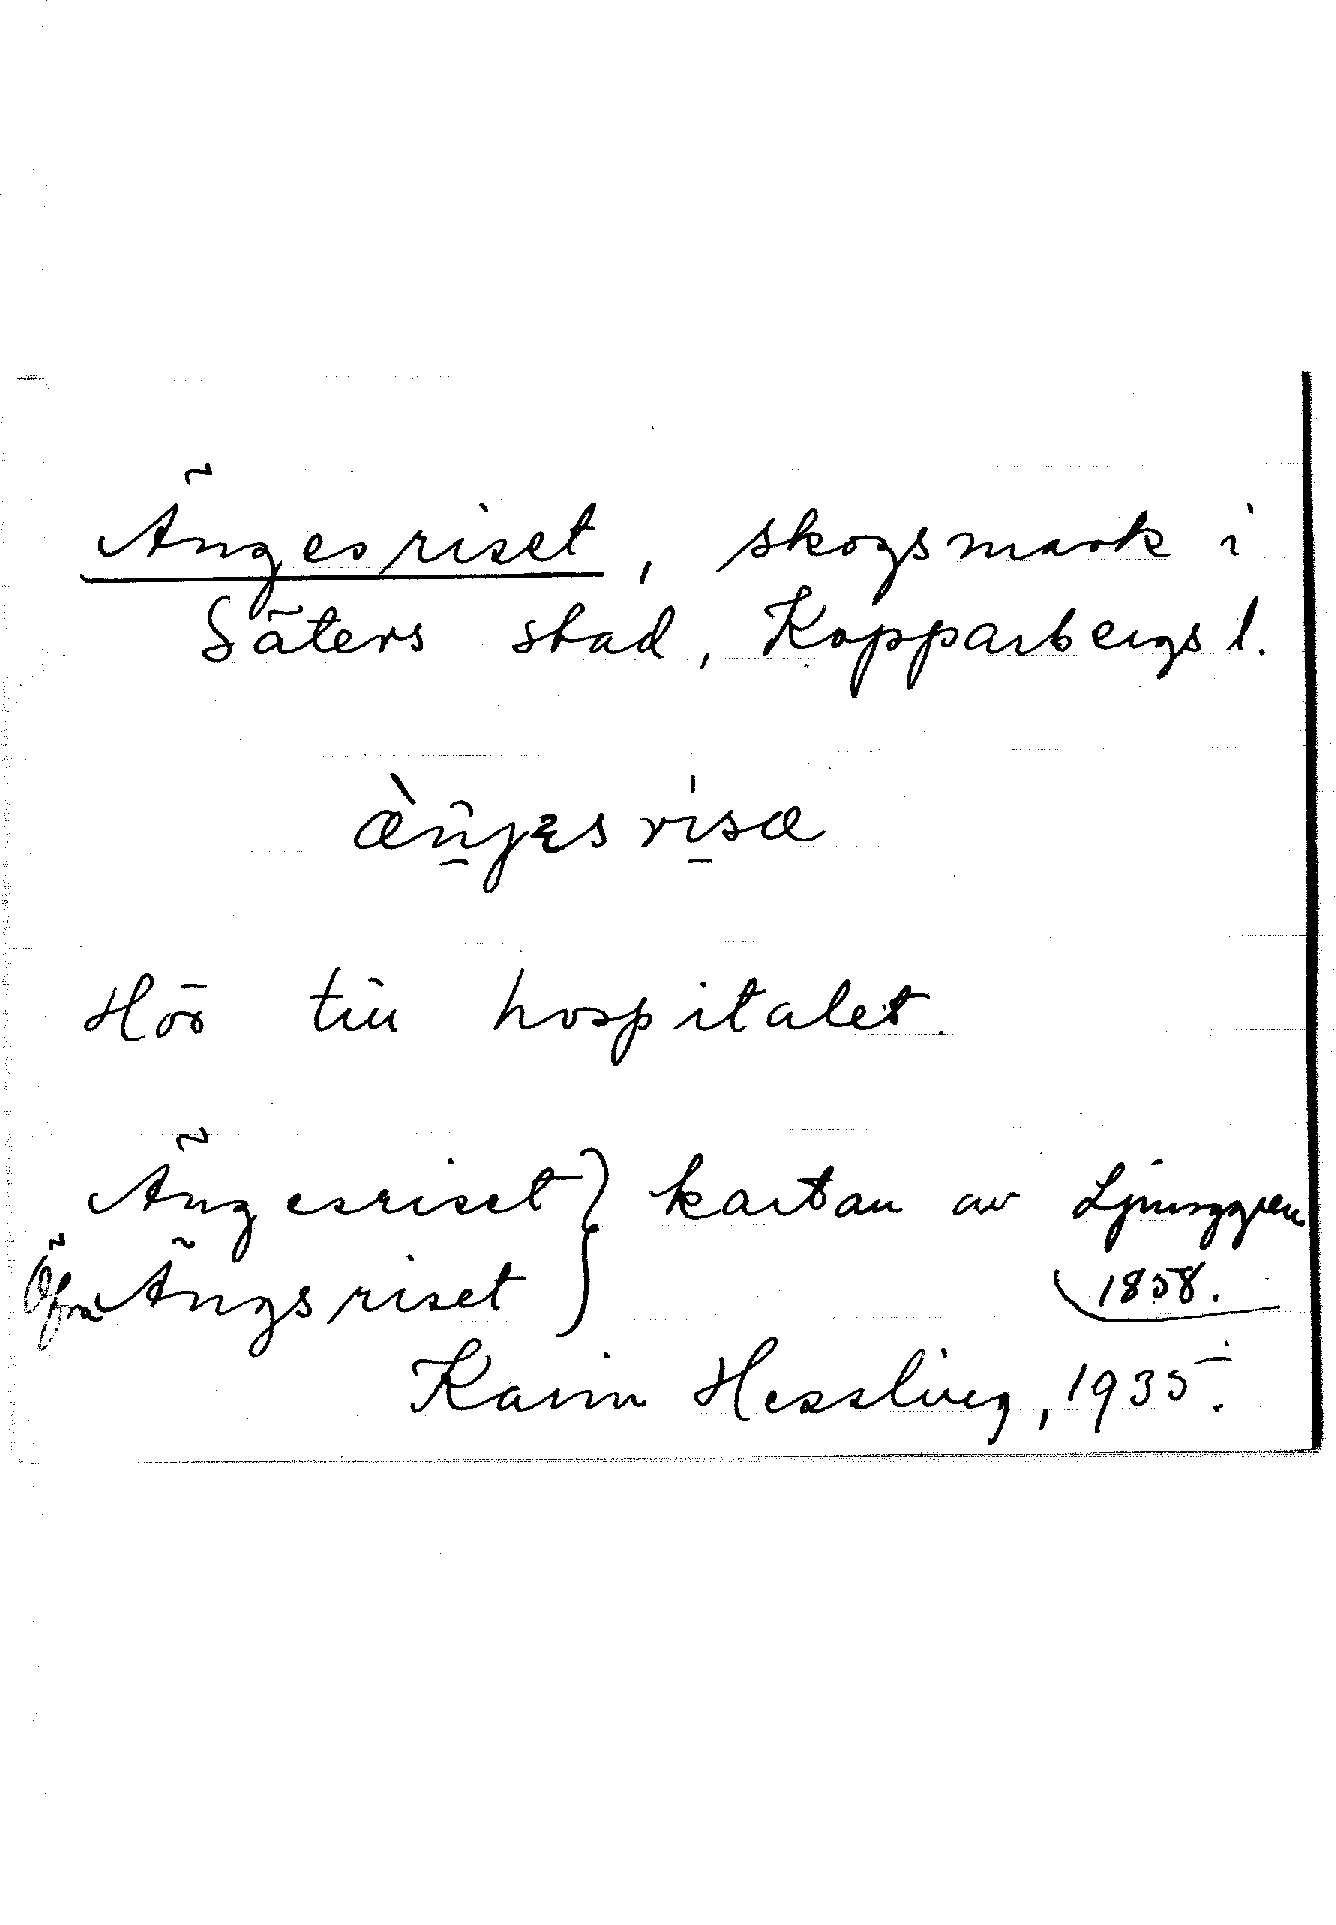 Ängesriset, skogsmark i
Säters stad, Kopparbergs l.
Hör till hospitalet.
Ängesriset } kartan av Ljunggren
Öfra Ängsriset } 1858.
Karin Hessling, 1935.